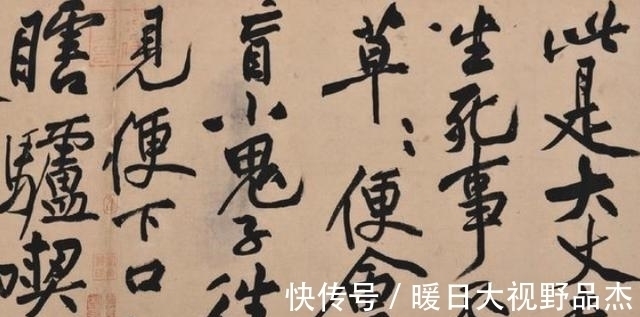 此是大丈
生死事
草〻便會
盲小鬼子往
見便下口
瞎驢喫
快传号 / 暖日大视野品杰